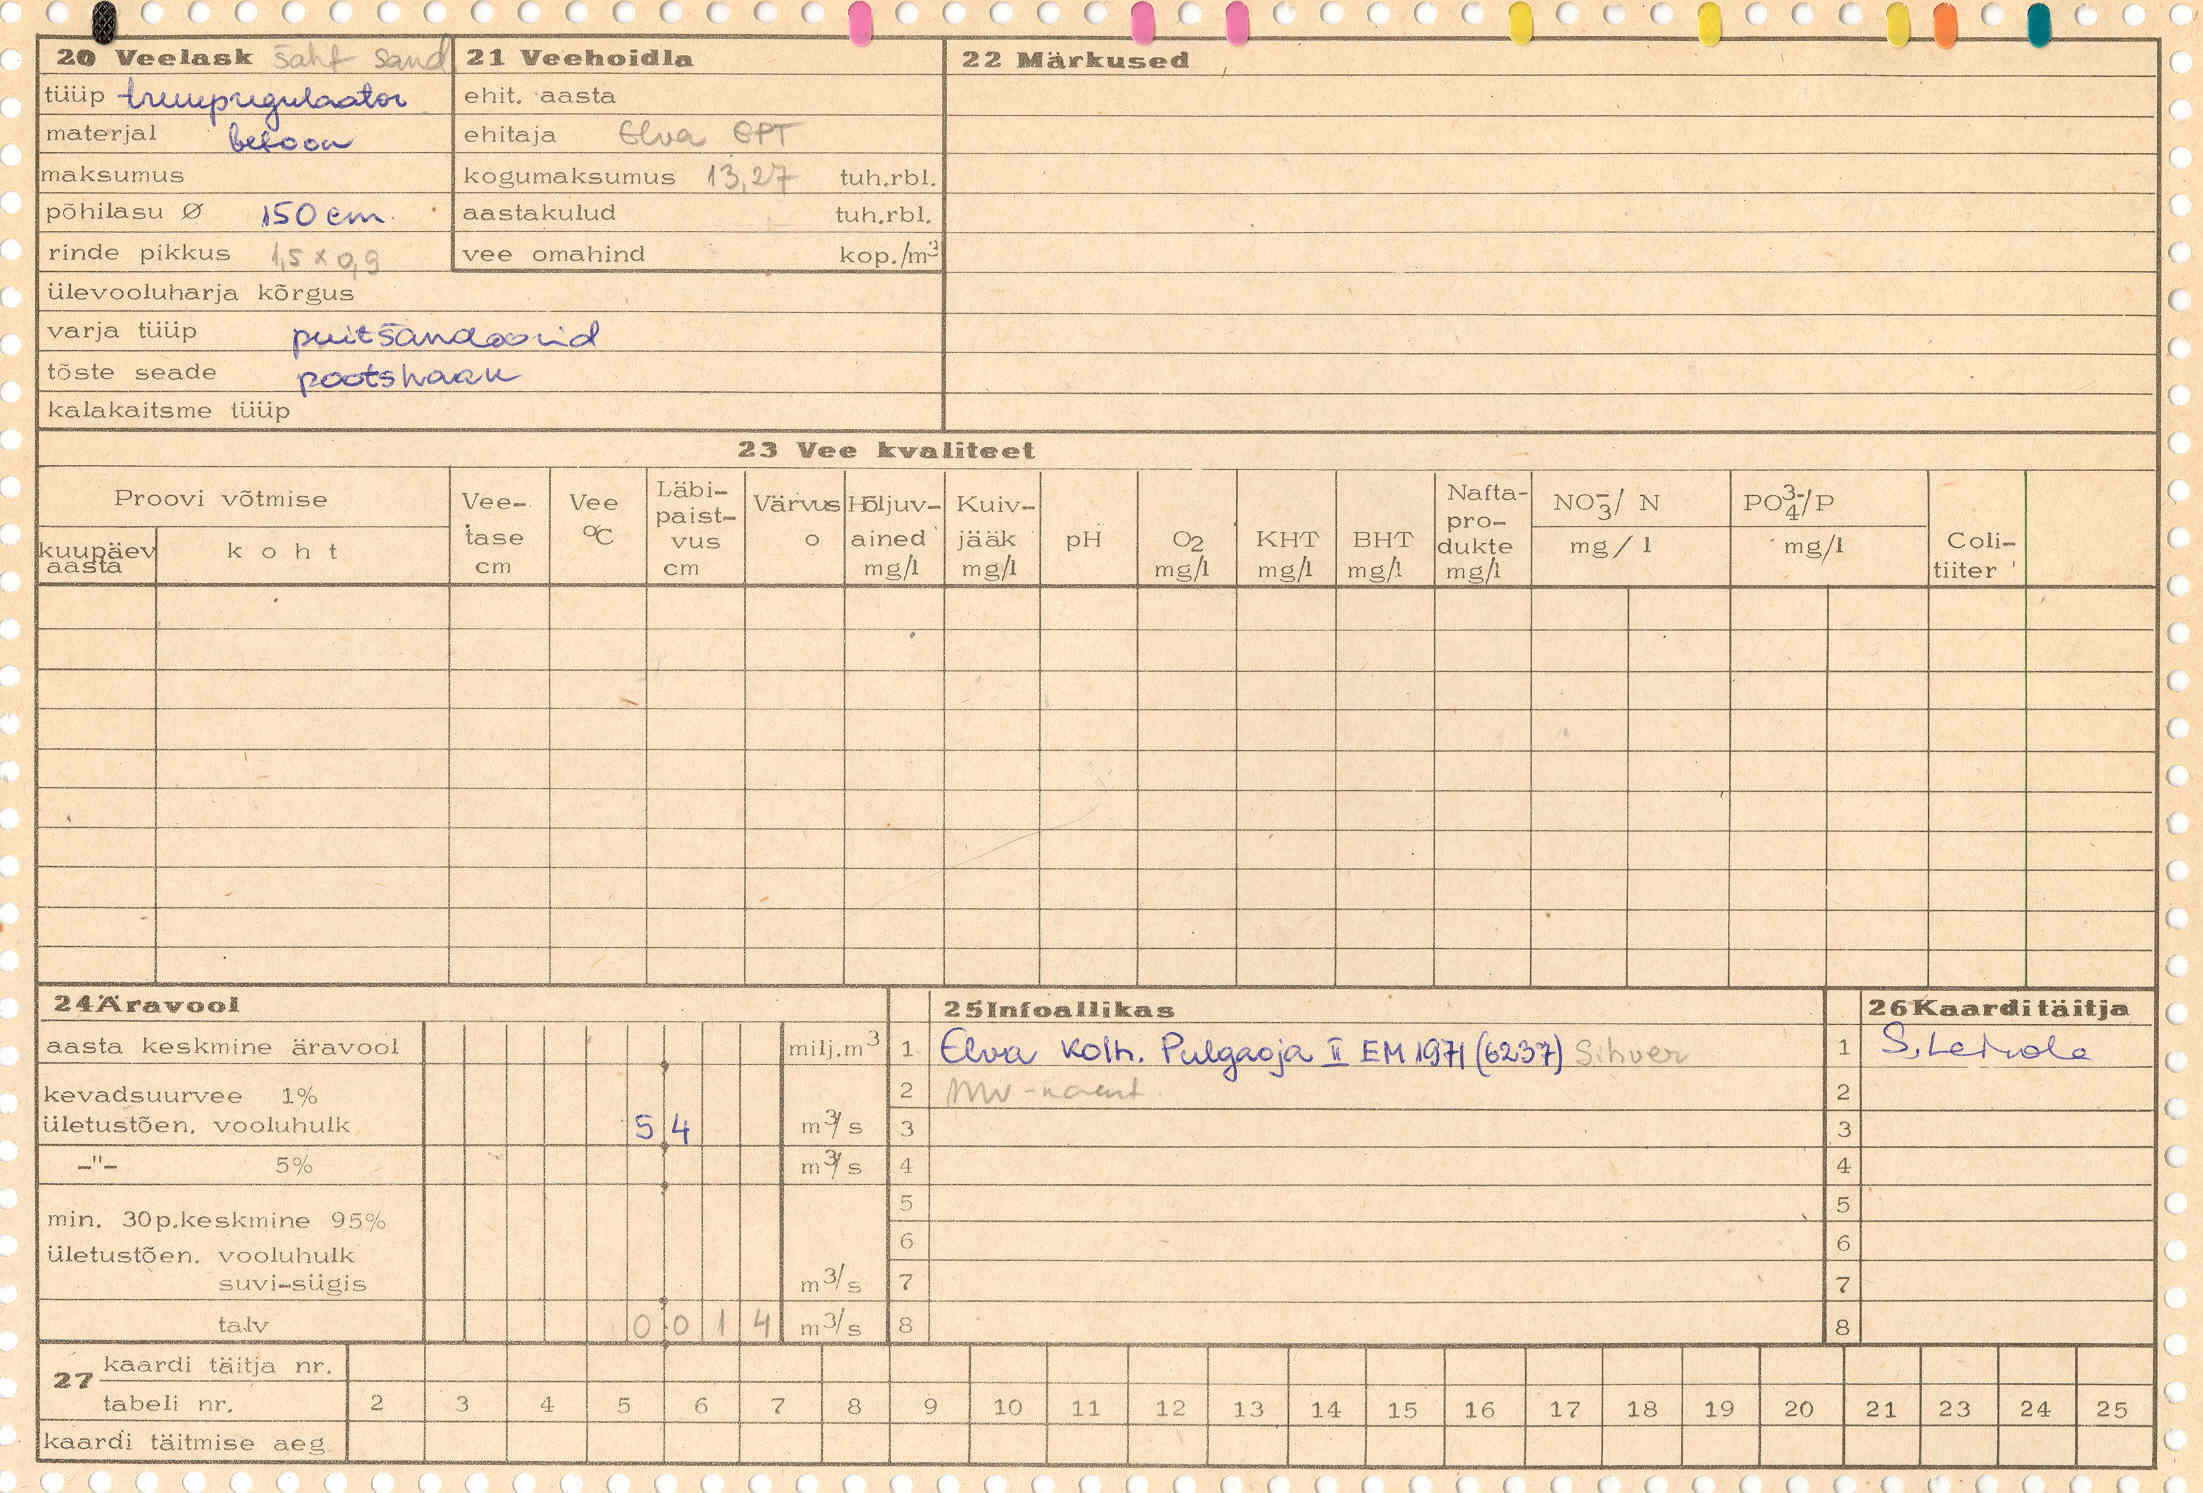 20 Veelask šaht šand
tüüp truupregulaator
materjal betoon
maksumus
põhilasu Ø 150 cm.
rinde pikkus 1,5 x 0,9
ülevooluharja kõrgus
varja tüüp puitšandoorid
tõste seade pootshaak
kalakaitsme tüüp
21 Veehoidla
ehit. aasta
ehitaja Elva EPT
kogumaksumus 13,27 tuh.rbl.
aastakulud tuh.rbl.
vee omahind kop./m³
22 Märkused
23 Vee kvaliteet
Proovi võtmise
kuupäev aasta
koht
Vee-
tase
cm
Vee
°C
Läbi-
paist-
vus
cm
Värvus
o
Hõljuv-
ained
mg/l
Kuiv-
jääk
mg/l
pH
O2
mg/l
KHT
mg/l
BHT
mg/l
Nafta-
pro-
dukte
mg/l
NO₃⁻/ N
mg/l
PO₄³⁻/P
mg/l
Coli-
tiiter
24 Äravool
aasta keskmine äravool milj.m³
kevadsuurvee 1%
ületustõen. vooluhulk 5 4 m³/s
-"- 5% m³/s
min. 30p.keskmine 95%
ületustõen. vooluhulk
suvi-sügis m³/s
talv 0 0 1 4 m³/s
25 Infoallikas
1 Elva kolh. Pulgaoja II EM 1971 (6237) Sihver
2 MV-
3
4
5
6
7
8
26 Kaarditäitja
1 S.
2
3
4
5
6
7
8
27 kaardi täitja nr.
tabeli nr. 2 3 4 5 6 7 8 9 10 11 12 13 14 15 16 17 18 19 20 21 23 24 25
kaardi täitmise aeg